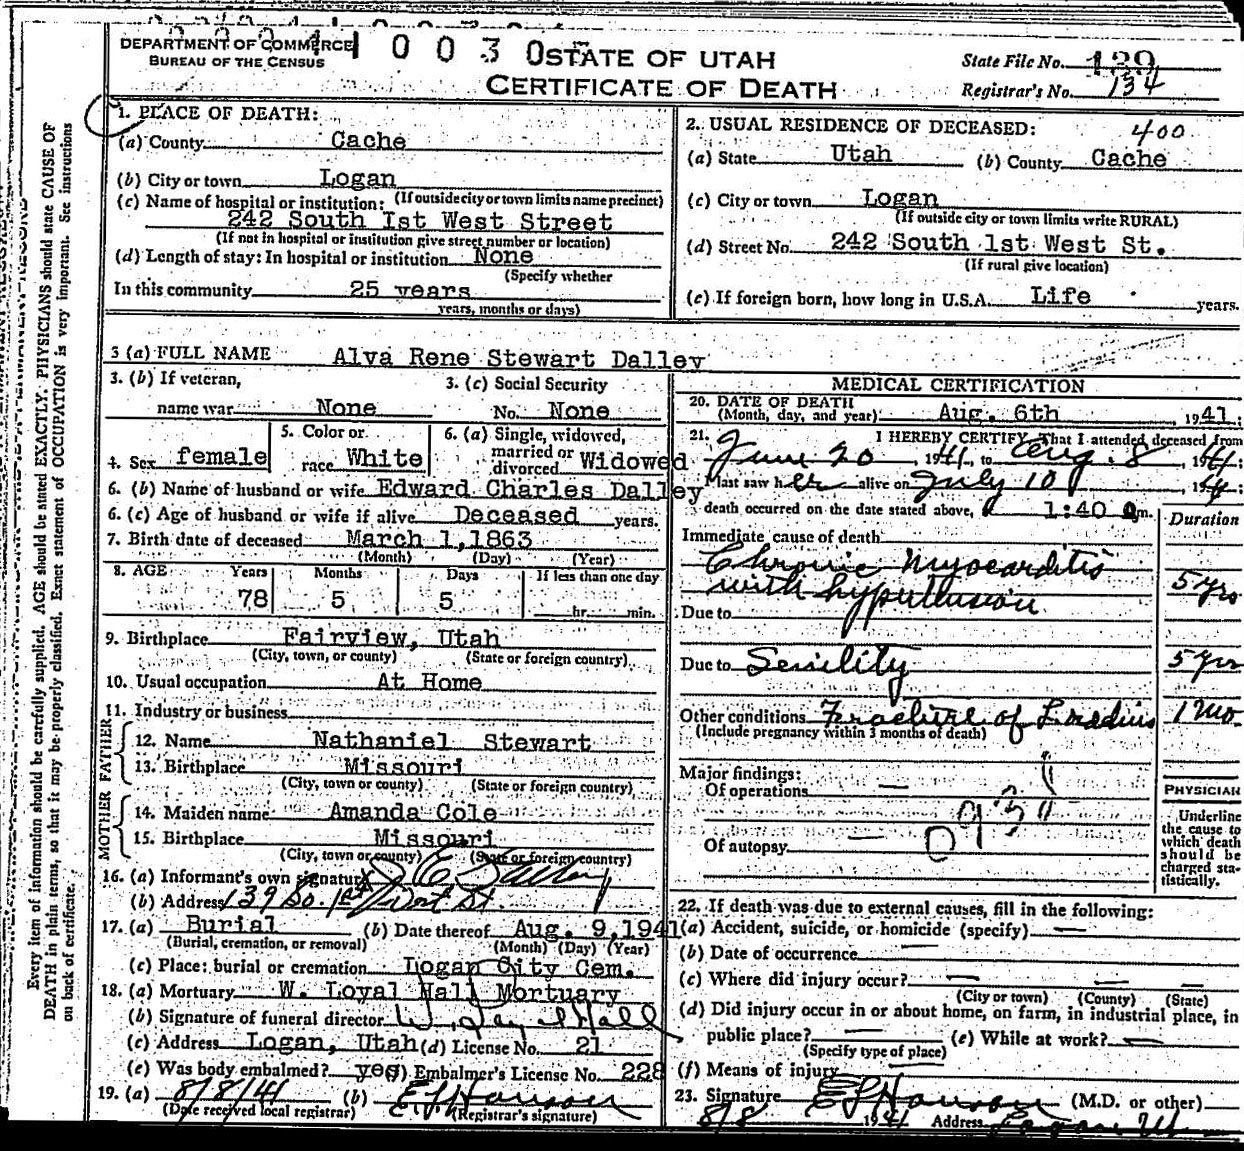 DEPARTMENT OF COMMERCE
BUREAU OF THE CENSUS
1 0 0 3 0
STATE OF UTAH
CERTIFICATE OF DEATH
State File No. 139
Registrar's No. 134
Every item of information should be carefully supplied. AGE should be stated EXACTLY. PHYSICIANS should state CAUSE OF
DEATH in plain terms, so that it may be properly classified. Exact statement of OCCUPATION is very important. See instructions
on back of certificate.
1. PLACE OF DEATH:
(a) County Cache
(b) City or town Logan
(If outside city or town limits name precinct)
(c) Name of hospital or institution:
242 South Ist West Street
(If not in hospital or institution give street number or location)
(d) Length of stay: In hospital or institution None
(Specify whether
In this community 25 years
years, months or days)
2. USUAL RESIDENCE OF DECEASED: 400
(a) State Utah (b) County Cache
(c) City or town Logan
(If outside city or town limits write RURAL)
(d) Street No. 242 South 1st West St.
(If rural give location)
(e) If foreign born, how long in U.S.A. Life years.
3 (a) FULL NAME Alva Rene Stewart Dalley
3. (b) If veteran,
name war None
3. (c) Social Security
No. None
4. Sex female
5. Color or
race White
6. (a) Single, widowed,
married or
divorced Widowed
6. (b) Name of husband or wife Edward Charles Dalley
6. (c) Age of husband or wife if alive Deceased years.
7. Birth date of deceased March 1,1863
(Month) (Day) (Year)
8. AGE Years Months Days If less than one day
78 5 5 hr. min.
9. Birthplace Fairview, Utah
(City, town, or county) (State or foreign country)
10. Usual occupation At Home
11. Industry or business
FATHER
12. Name Nathaniel Stewart
13. Birthplace Missouri
(City, town, or county) (State or foreign country)
MOTHER
14. Maiden name Amanda Cole
15. Birthplace Missouri
(City, town or county) (State or foreign country)
16. (a) Informant's own signature
(b) Address 139 So. 1st West St.
17. (a) Burial (b) Date thereof Aug. 9,1941
(Burial, cremation, or removal) (Month) (Day) (Year)
(c) Place: burial or cremation Logan City Cem.
18. (a) Mortuary W. Loyal Hall Mortuary
(b) Signature of funeral director W. Loyal Hall
(c) Address Logan, Utah (d) License No. 21
(e) Was body embalmed? yes (f) Embalmer's License No. 228
19. (a) 8/8/41 (b)
(Date received local registrar) (Registrar's signature)
MEDICAL CERTIFICATION
20. DATE OF DEATH
(Month, day, and year) Aug. 6th 1941
21. I HEREBY CERTIFY, That I attended deceased from
June 20, 1941, to Aug. 8, 1941;
I last saw her alive on July 10 1941;
death occurred on the date stated above, 1:40 a m.
Duration
Immediate cause of death
Chronic Myocarditis
with hypertension 5 yrs
Due to
Due to Senility 5 yrs
Other conditions Fracture of L radius 1 mo.
(Include pregnancy within 3 months of death)
Major findings:
Of operations —
Of autopsy —
PHYSICIAN
Underline
the cause to
which death
should be
charged sta-
tistically.
22. If death was due to external causes, fill in the following:
(a) Accident, suicide, or homicide (specify) —
(b) Date of occurrence —
(c) Where did injury occur? — — —
(City or town) (County) (State)
(d) Did injury occur in or about home, on farm, in industrial place, in
public place? — (e) While at work? —
(Specify type of place)
(f) Means of injury —
23. Signature (M.D. or other)
8/8 1941 Address Logan Ut.